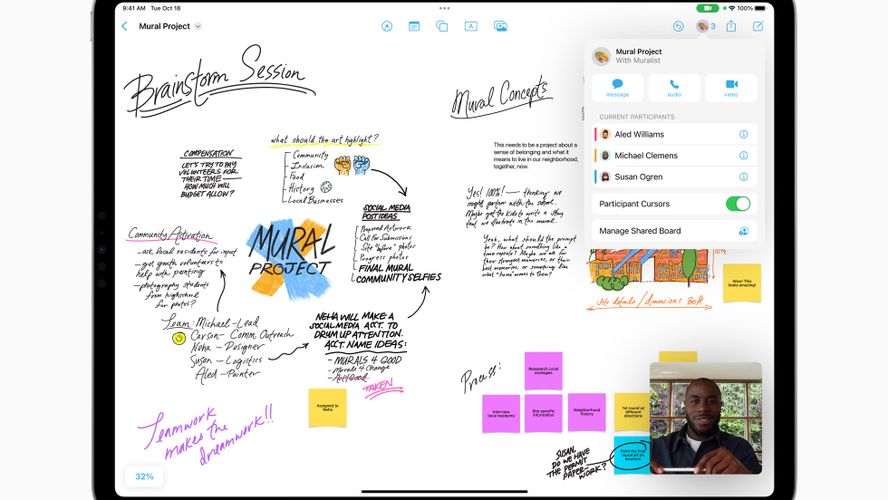 9:41 AM Tue Oct 18
100%
Mural Project
3
Brainstorm Session
COMPENSATION
LET'S TRY TO PAY
VOLUNTEERS FOR
THEIR TIME —
HOW MUCH WILL
BUDGET ALLOW?
what should the art highlight?
Community
Inclusion
Food
History
Local Businesses
Community Activation
- ask local residents for input
- get youth volunteers to
help with painting
- photography students
from highschool
for photos?
MURAL
PROJECT
SOCIAL MEDIA
POST IDEAS
Proposed Artwork
Call For Submissions
Site "before" photos
Progress photos
FINAL MURAL
COMMUNITY SELFIES
Team: Michael - Lead
Carson - Comm. Outreach
Neha - Designer
Susan - Logistics
Aled - Painter
NEHA WILL MAKE A
SOCIAL MEDIA ACCT. TO
DRUM UP ATTENTION.
ACCT. NAME IDEAS:
- MURALS 4 GOOD
- Murals 4 Change
- Art 4 Good
TAKEN
Assigned to
Neha
Teamwork
makes the
dreamwork!!
32%
Mural Concepts
This needs to be a project about a
sense of belonging and what it
means to live in our neighborhood,
together, now.
Yes! 100%! — thinking we
might partner with the school.
Maybe get the kids to write a story
that we illustrate in the mural.
Yeah, what should the prompt
be? How about something like a
time capsule? Maybe we ask for
their strongest memories, or their
best memories, or something like
what "home" means to them?
Mural Project
With Muralist
message
audio
video
CURRENT PARTICIPANTS
Aled Williams
Michael Clemens
Susan Ogren
Participant Cursors
Manage Shared Board
Wow! This
looks amazing!
Site details / dimensions
Process:
Research Local
ecologies
Interview
local residents
Site specific
information
Neighborhood
history
1st round w/
different
directions
Paint the final
mural art on
location!
SUSAN,
DO WE HAVE
THE PERMIT
PAPER-
WORK?